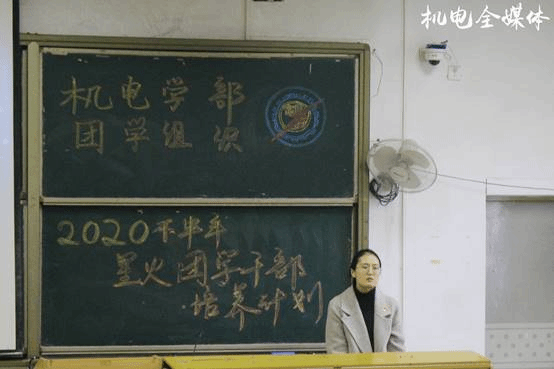 机电全媒体
机电学部
团学组织
2020下半年
星火团学干部
培养计划